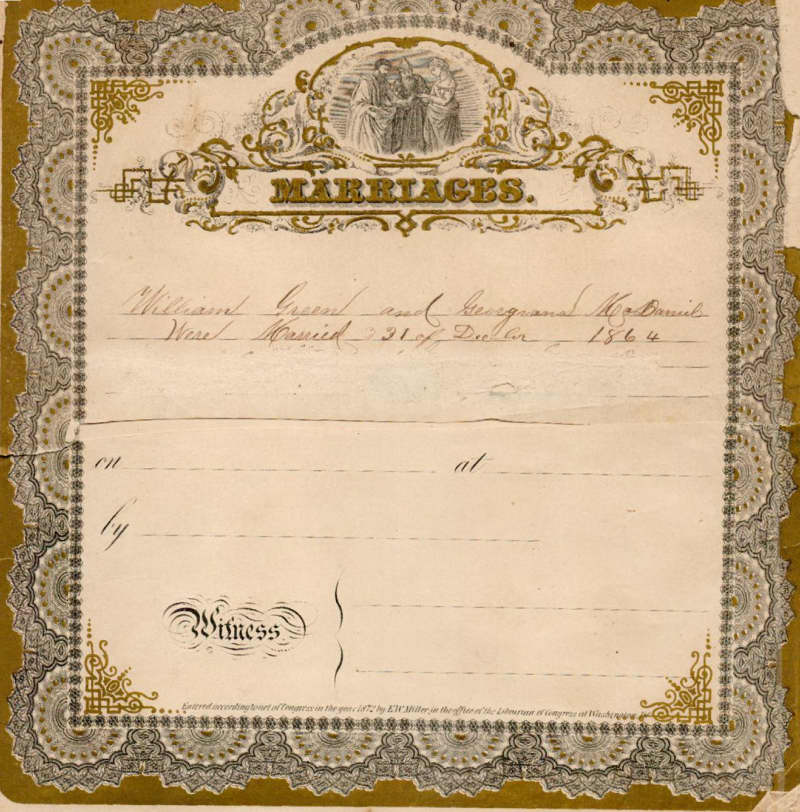 MARRIAGES.
William Green and Georgiana McDaniel
Were Married 31 of 1864
on at
by
Witness
Entered according to act of Congress in the year 1872 by E.W. Miller, in the office of the Librarian of Congress at Washington